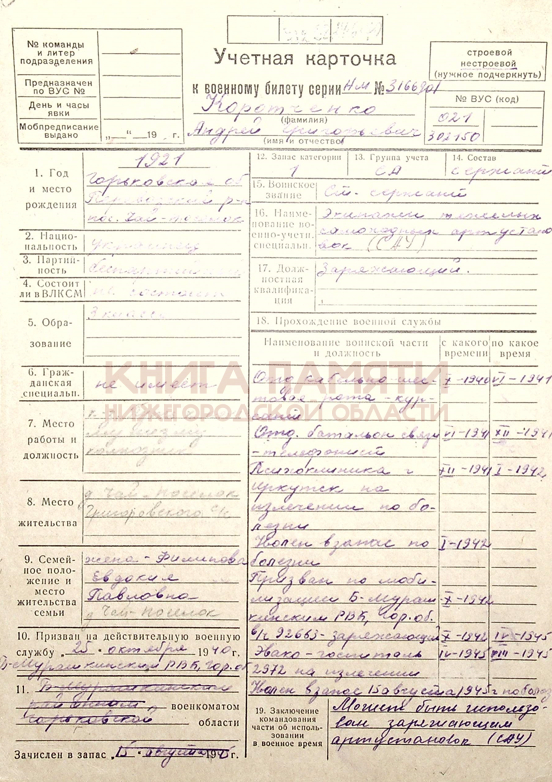 № команды
и литер
подразделения
Предназначен
по ВУС №
День и часы
явки
Мобпредписание
выдано
"—"—19 г.
Учетная карточка
к военному билету серии НМ № 3166801
Коротченко
(фамилия)
Андрей Григорьевич
(имя и отчество)
строевой
нестроевой
(нужное подчеркнуть)
№ ВУС (код)
021
302150
1. Год
и место
рождения
1921
Горьковской об
пос. Чай-поселок
2. Нацио-
нальность
украинец
3. Партий-
ность
беспартийный
4. Состоит
ли в ВЛКСМ
не состоит
5. Обра-
зование
3 класса
6. Граж-
данская
специальн.
не имеет
7. Место
работы и
должность
колхозник
8. Место
жительства
д. Чай-поселок
Григоровского с/с
9. Семей-
ное поло-
жение и
место
жительства
семьи
жена - Филипова
Евдокия
Павловна
д. Чай-поселок
10. Призван на действительную военную
службу „25" октября 1940г.
Б-Мурашкинским РВК, Гор. об.
11. Б-Мурашкинским
районным военкоматом
Горьковской области
Зачислен в запас „15" августа 1945г.
12. Запас категории
1
13. Группа учета
СА
14. Состав
сержант
15. Воинское
звание
Ст. сержант
16. Наиме-
нование во-
енно-учетн.
специальн.
Экипажи тяжелых
самоходных артустано
вок (САУ)
17. Долж-
ностная
квалифика-
ция
Заряжающий.
18. Прохождение военной службы
Наименование воинской части
и должность
с какого
времени
по какое
время
рота - кур-
X-1940 VI-1941
Отд. батальон связи
- телефонист
VI-1941 XII-1941
Психоклиника г
Иркутск на
излечении по бо-
лезни
XII-1941 I-1942
Уволен в запас по
болезни
I-1942
Призван по моби-
лизацией Б-Мураш
кинским РВК, Гор. об.
в/ч 92663-заряжающий
X-1942 IV-1945
Эвако-госпиталь
2972 на излечении
IV-1945 VIII-1945
Уволен в запас 15 августа 1945г по болез
19. Заключение
командования
части об исполь-
зовании
в военное время
Может быть использо-
ван заряжающим
артустановок (САУ)
КНИГА ПАМЯТИ
НИЖЕГОРОДСКОЙ ОБЛАСТИ